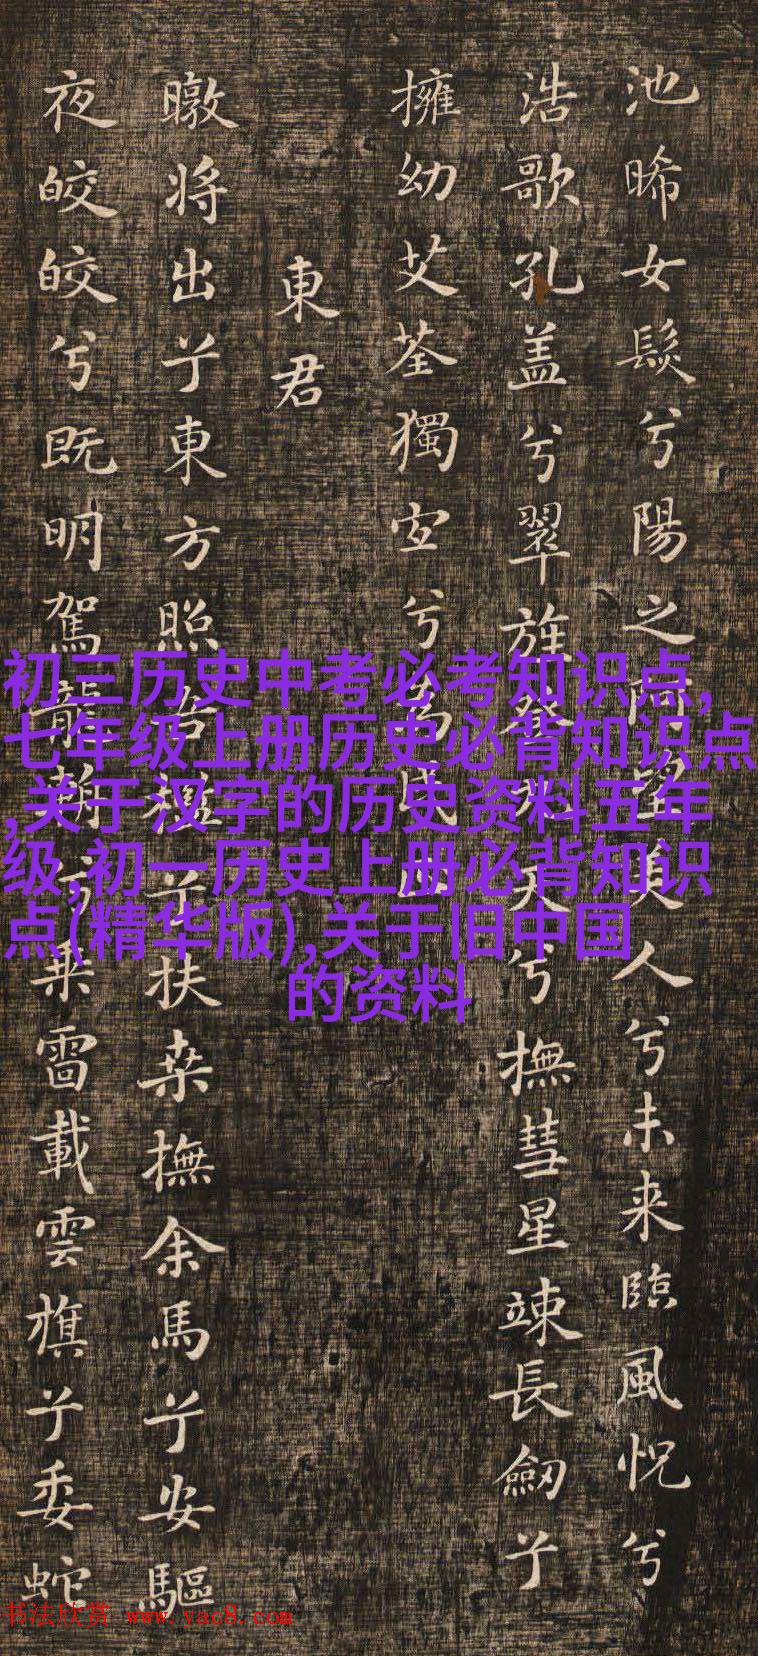 池晞女髮兮陽之阿望美人兮未来臨風怳兮
浩歌孔盖兮翠旌登九天兮撫彗星竦長劒兮
擁幼艾荃獨宜兮為民正
東君
暾将出兮東方照吾檻兮扶桒撫余馬兮安驅
夜皎皎兮既明駕龍輈兮乗雷載雲旗兮委蛇
初三历史中考必考知识点,
七年级上册历史必背知识点
,关于汉字的历史资料五年
级,初一历史上册必背知识
点(精华版),关于旧中国
的资料
书法欣赏 www.yac8.com